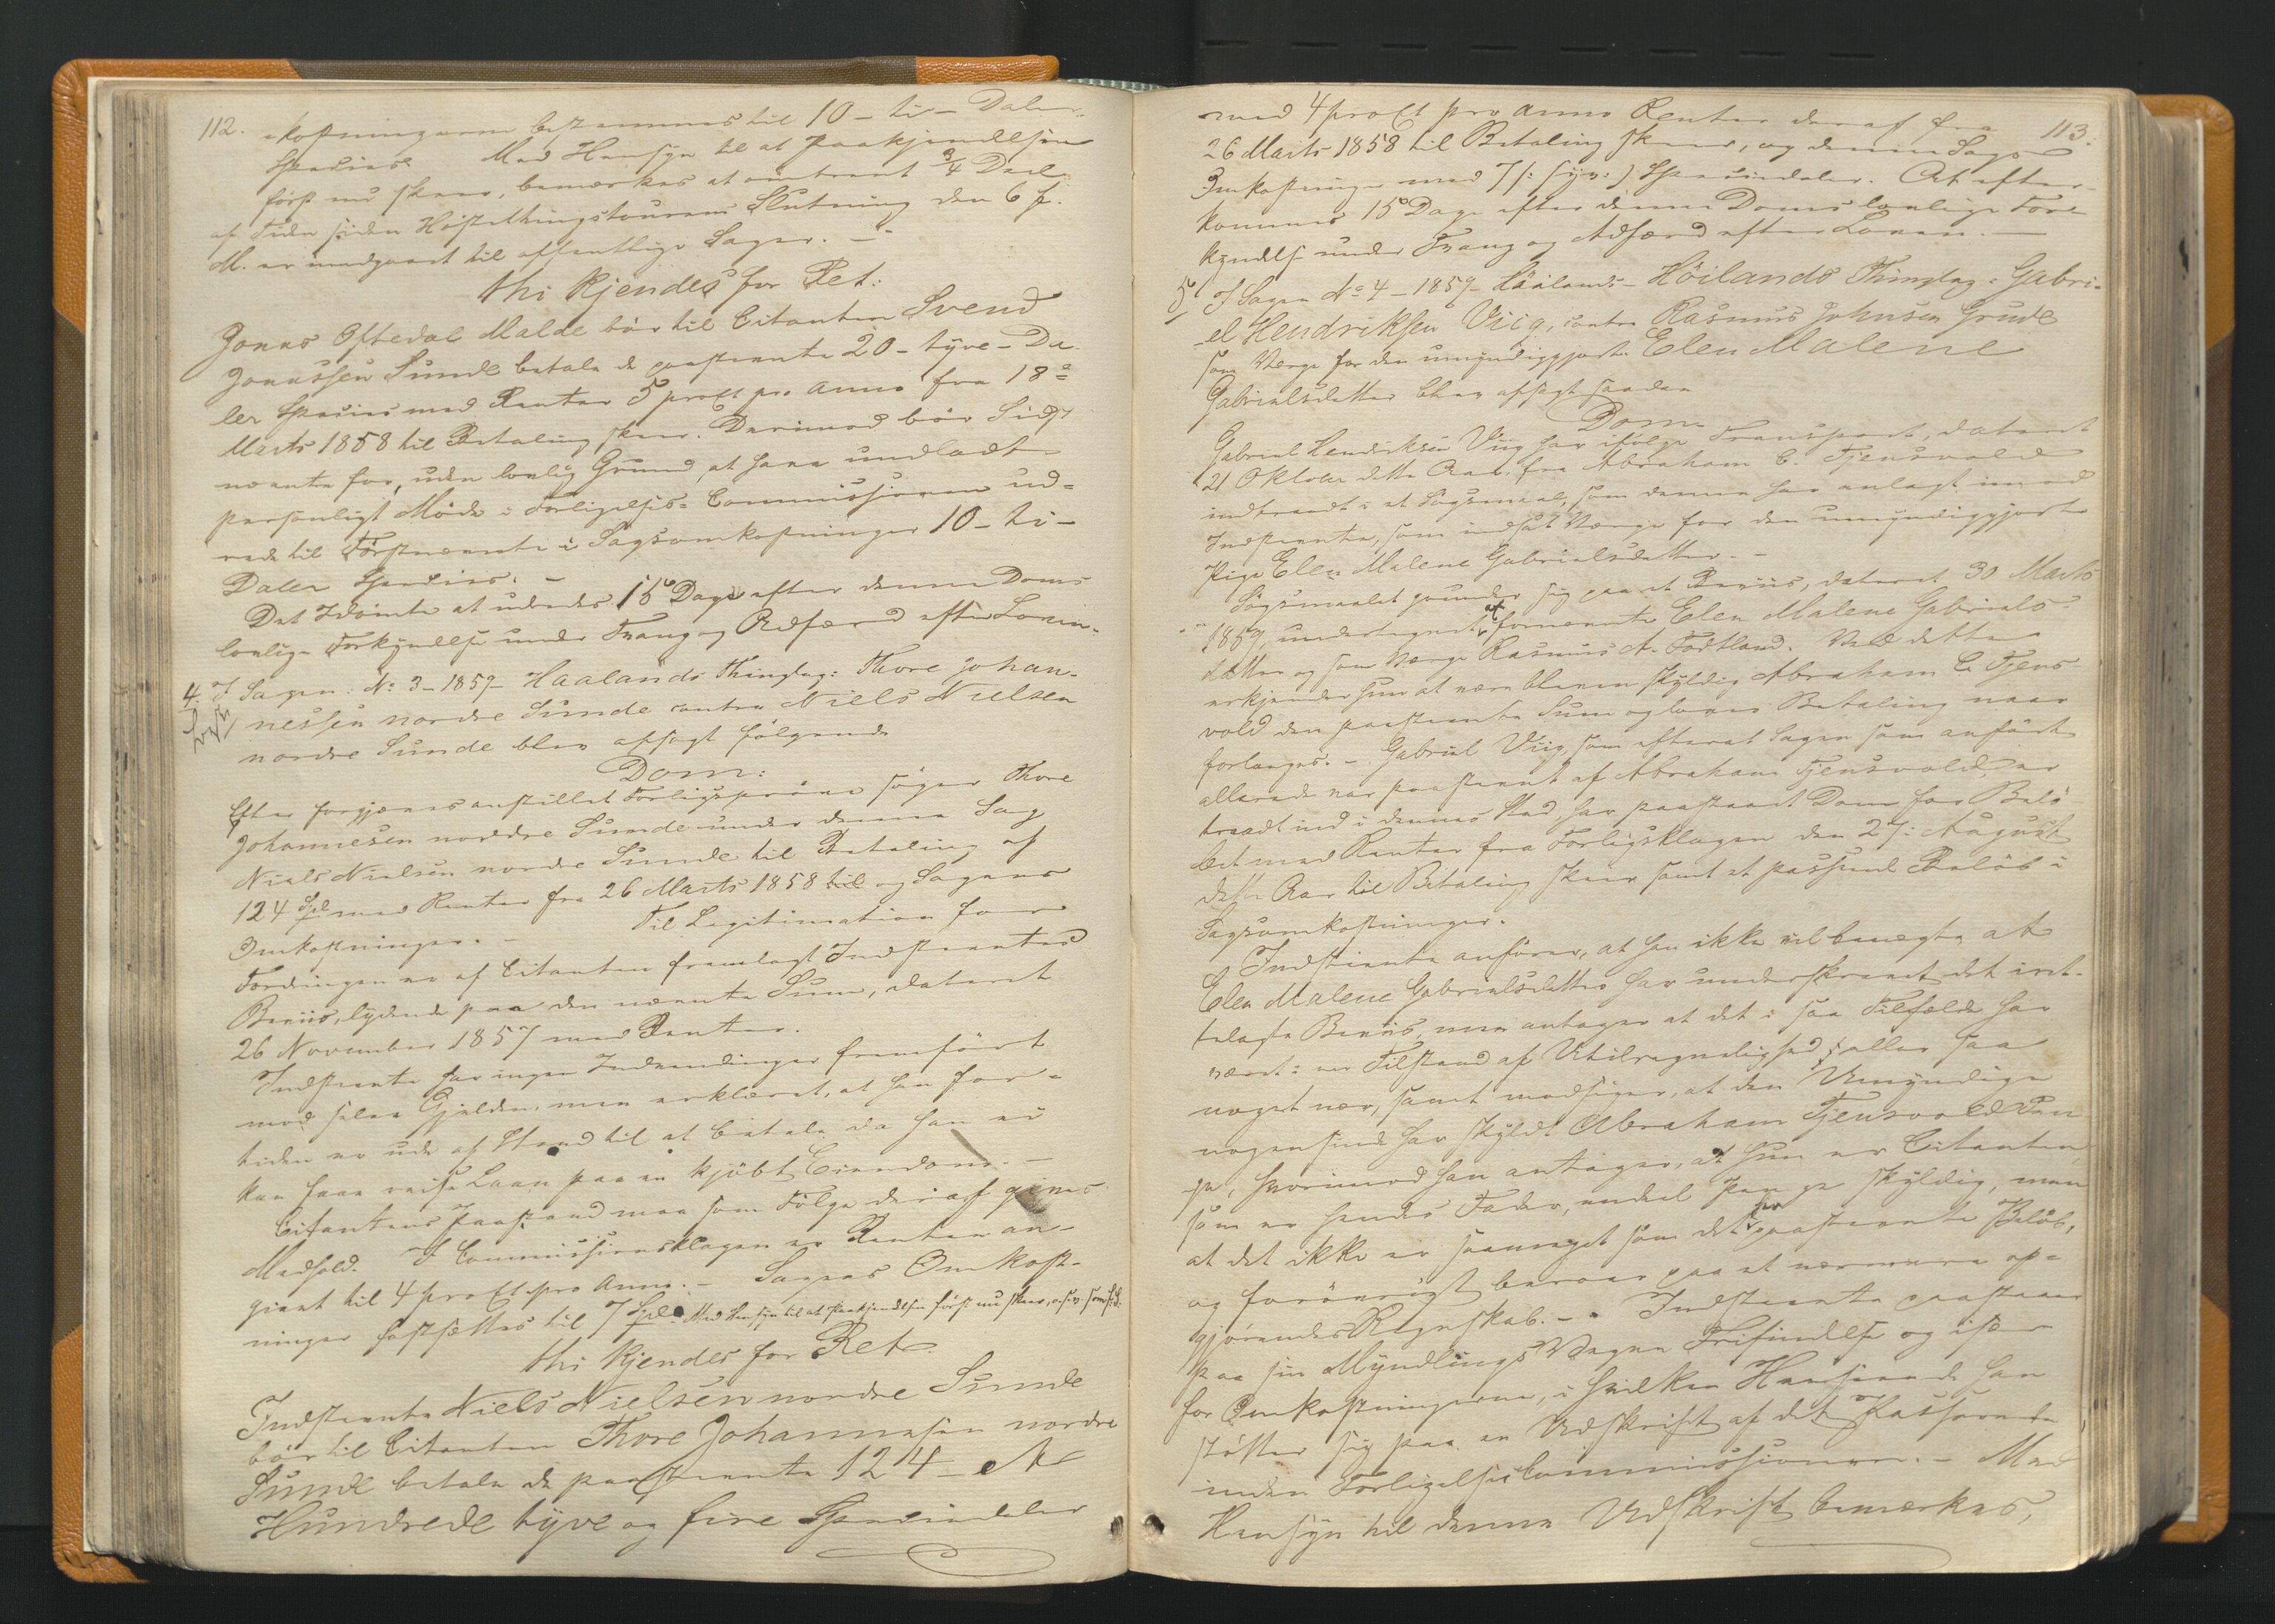 112.
-kostningerne bestemmes til 10 - ti - Daler
Species. Med Hensyn til at Paakjendelsen
først nu skeer, bemærkes at omtrent 3/4 Deel
af Tiden siden Høstethingstourens Slutning den 6 f.
M. er medgaaet til offentlige Sager. -
thi kjendes for Ret:
Jonas Oftedal Malde bør til Citanten Svend
Jonassen Sunde betale de paastevnte 20 - tyve - Da-
ler Species med Renter 5 proCt pro anno fra 18de
Marts 1858 til Betaling skeer. Derimod bør Sidst-
nævnte for, uden lovlig Grund, at have undladt
personligt Møde i Forligelses-Commissionen ud-
rede til Førstnævnte i Sagsomkostninger 10 - ti -
Daler Species. -
Det Idømte at udredes 15 Dage efter denne Doms
lovlige Forkyndelse under Tvang og Adfærd efter Loven.
4. I Sagen: No 3 - 1859 - Haalands Thinglag: Thore Johan-
nessen nordre Sunde contra Niels Nielsen
nordre Sunde blev afsagt følgende
Dom:
Efter forgjæves anstillet Forligsprøve søger Thore
Johannesen norddre Sunde under denne Sag
Niels Nielsen nordre Sunde til Betaling af
124 Spd med Renter fra 26 Marts 1858 til og Sagens
Omkostninger. - Til Legitimation for
Fordringen er af Citanten fremlagt Indstevntes
Beviis, lydende paa den nævnte Sum, dateret
26 November 1857 med Renter.
Indstevnte har ingen Indvendinger fremført
mod selve Gjelden, men erklæret, at han for-
tiden er ude af Stand til at betale da han ei
kan faae reise Laan paa en kjøbt Eiendom. -
Citantens Paastand maa som Følge deraf gives
Medhold. I Commissionsklagen er Renten an-
givet til 4 proCt pro Anno. - Sagens Omkost-
ninger fastsættes til 7 Spd. Med Hensyn til at Paakjendelsen først nu skeer, o.s.v. som
thi kjendes for Ret
Indstevnte Niels Nielsen nordre Sunde
bør til Citanten Thore Johannesen nordre
Sunde betale de paastevnte 124 - et
Hundrede tyve og fire Speciedaler
113.
med 4 proCt pro anno Renter deraf fra
26 Marts 1858 til Betaling skeer, og denne Sags
Omkostninger med 7 /: syv :/ Speciedaler. At efter-
kommes 15 Dage efter denne Doms lovlige For-
kyndelse under Tvang og Adfærd efter Loven. -
5/ I Sagen No 4 - 1859 - Høilands Thinglag: Gabri-
el Hendriksen Viig, contra Rasmus Johnsen Grude
som Værge for den umyndiggjorte Elen Malene
Gabrielsdatter blev afsagt saadan
Dom
Gabriel Hendriksen Viig har ifølge Transport, dateret
21 Oktober dette Aar, fra Abraham C. Tjensvold
indtraadt i et Søgsmaal, som denne har anlagt imod
Indstevnte, som indsat Værge for den umyndiggjorte
Pige Elen Malene Gabrielsdatter. -
Søgsmaalet grunder sig paa et Beviis, dateret 30 Marts
1857, undertegnet af fornævnte Elen Malene Gabriels-
datter og som Værge Rasmus A. Todtland. Ved dette
erkjender hun at være bleven skyldig Abraham C. Tjens-
vold den paastevnte Sum og lover Betaling naar
forlanges. - Gabriel Viig, som efterat Sagen som anført
allerede var paastevnt af Abraham Tjensvold, er
traadt ind i dennes Sted har paastaaet Dom for Belø-
bet med Renter fra Forligsklagen den 27: August
dette Aar til Betaling skeer samt et passende Beløb i
Sagsomkostninger.
Indstevnte anfører, at han ikke vil benægte at
Elen Malene Gabrielsdatter har underskrevet det iret-
telagte Beviis, men antager at det i saa Tilfælde har
været i en Tilstand af Utilregnelighed eller saa
noget nær, samt modsiger, at den Umyndige
nogensinde har skyldt Abraham Tjensvold Pen-
ge, hvorimod han antager, at hun er Citanten
som er hendes Fader, endeel Penge skyldig, men
at det ikke er saameget som det her paastevnte Beløb,
og forøvrigt beroer paa et nærmere op-
gjørendes Regnskab. - Indstevnte paastaaer
paa sin Myndlings Vegne Frifindelse og især
for Omkostningerne, i hvilken Henseende han
støtter sig paa en Udskrift af det Passerede
inden Forligelsescommissionen. - Med
Hensyn til denne Udskrift bemærkes,